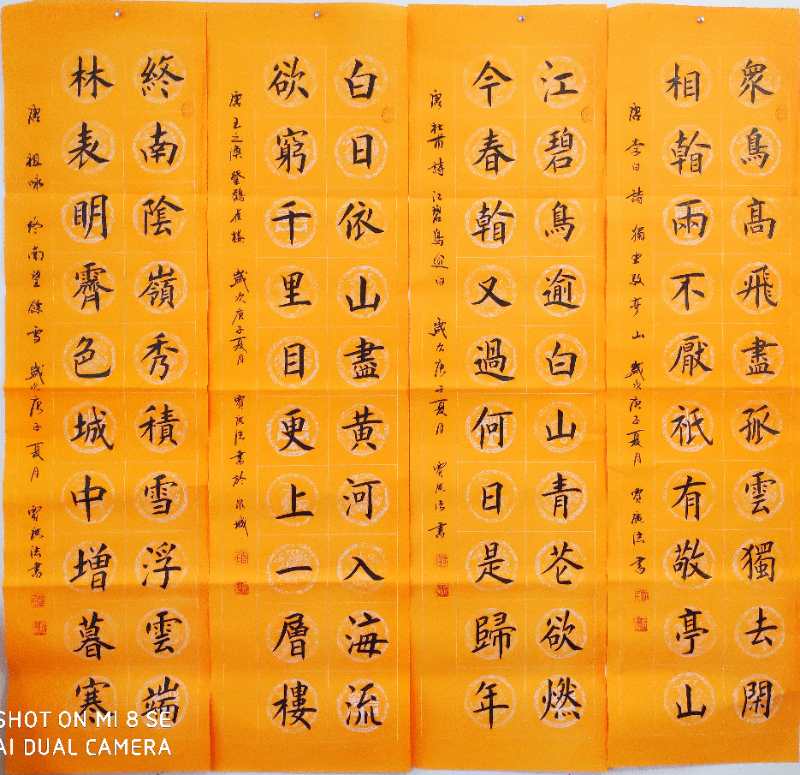 衆鳥髙飛盡孤雲獨去閑
相看兩不厭祇有敬亭山
唐 李白 詩 獨坐敬亭山 歲次庚子夏月 書
江碧鳥逾白山青花欲燃
今春看又過何日是歸年
唐 杜甫 詩 江碧鳥逾白 歲次庚子夏月 書
白日依山盡黄河入海流
欲窮千里目更上一層樓
唐 王之渙 登鸛雀樓 歲次庚子夏月 書於 泉城
終南陰嶺秀積雪浮雲端
林表明霽色城中增暮寒
唐 祖咏 終南望餘雪 歲次庚子夏月 書
SHOT ON MI 8 SE
AI DUAL CAMERA